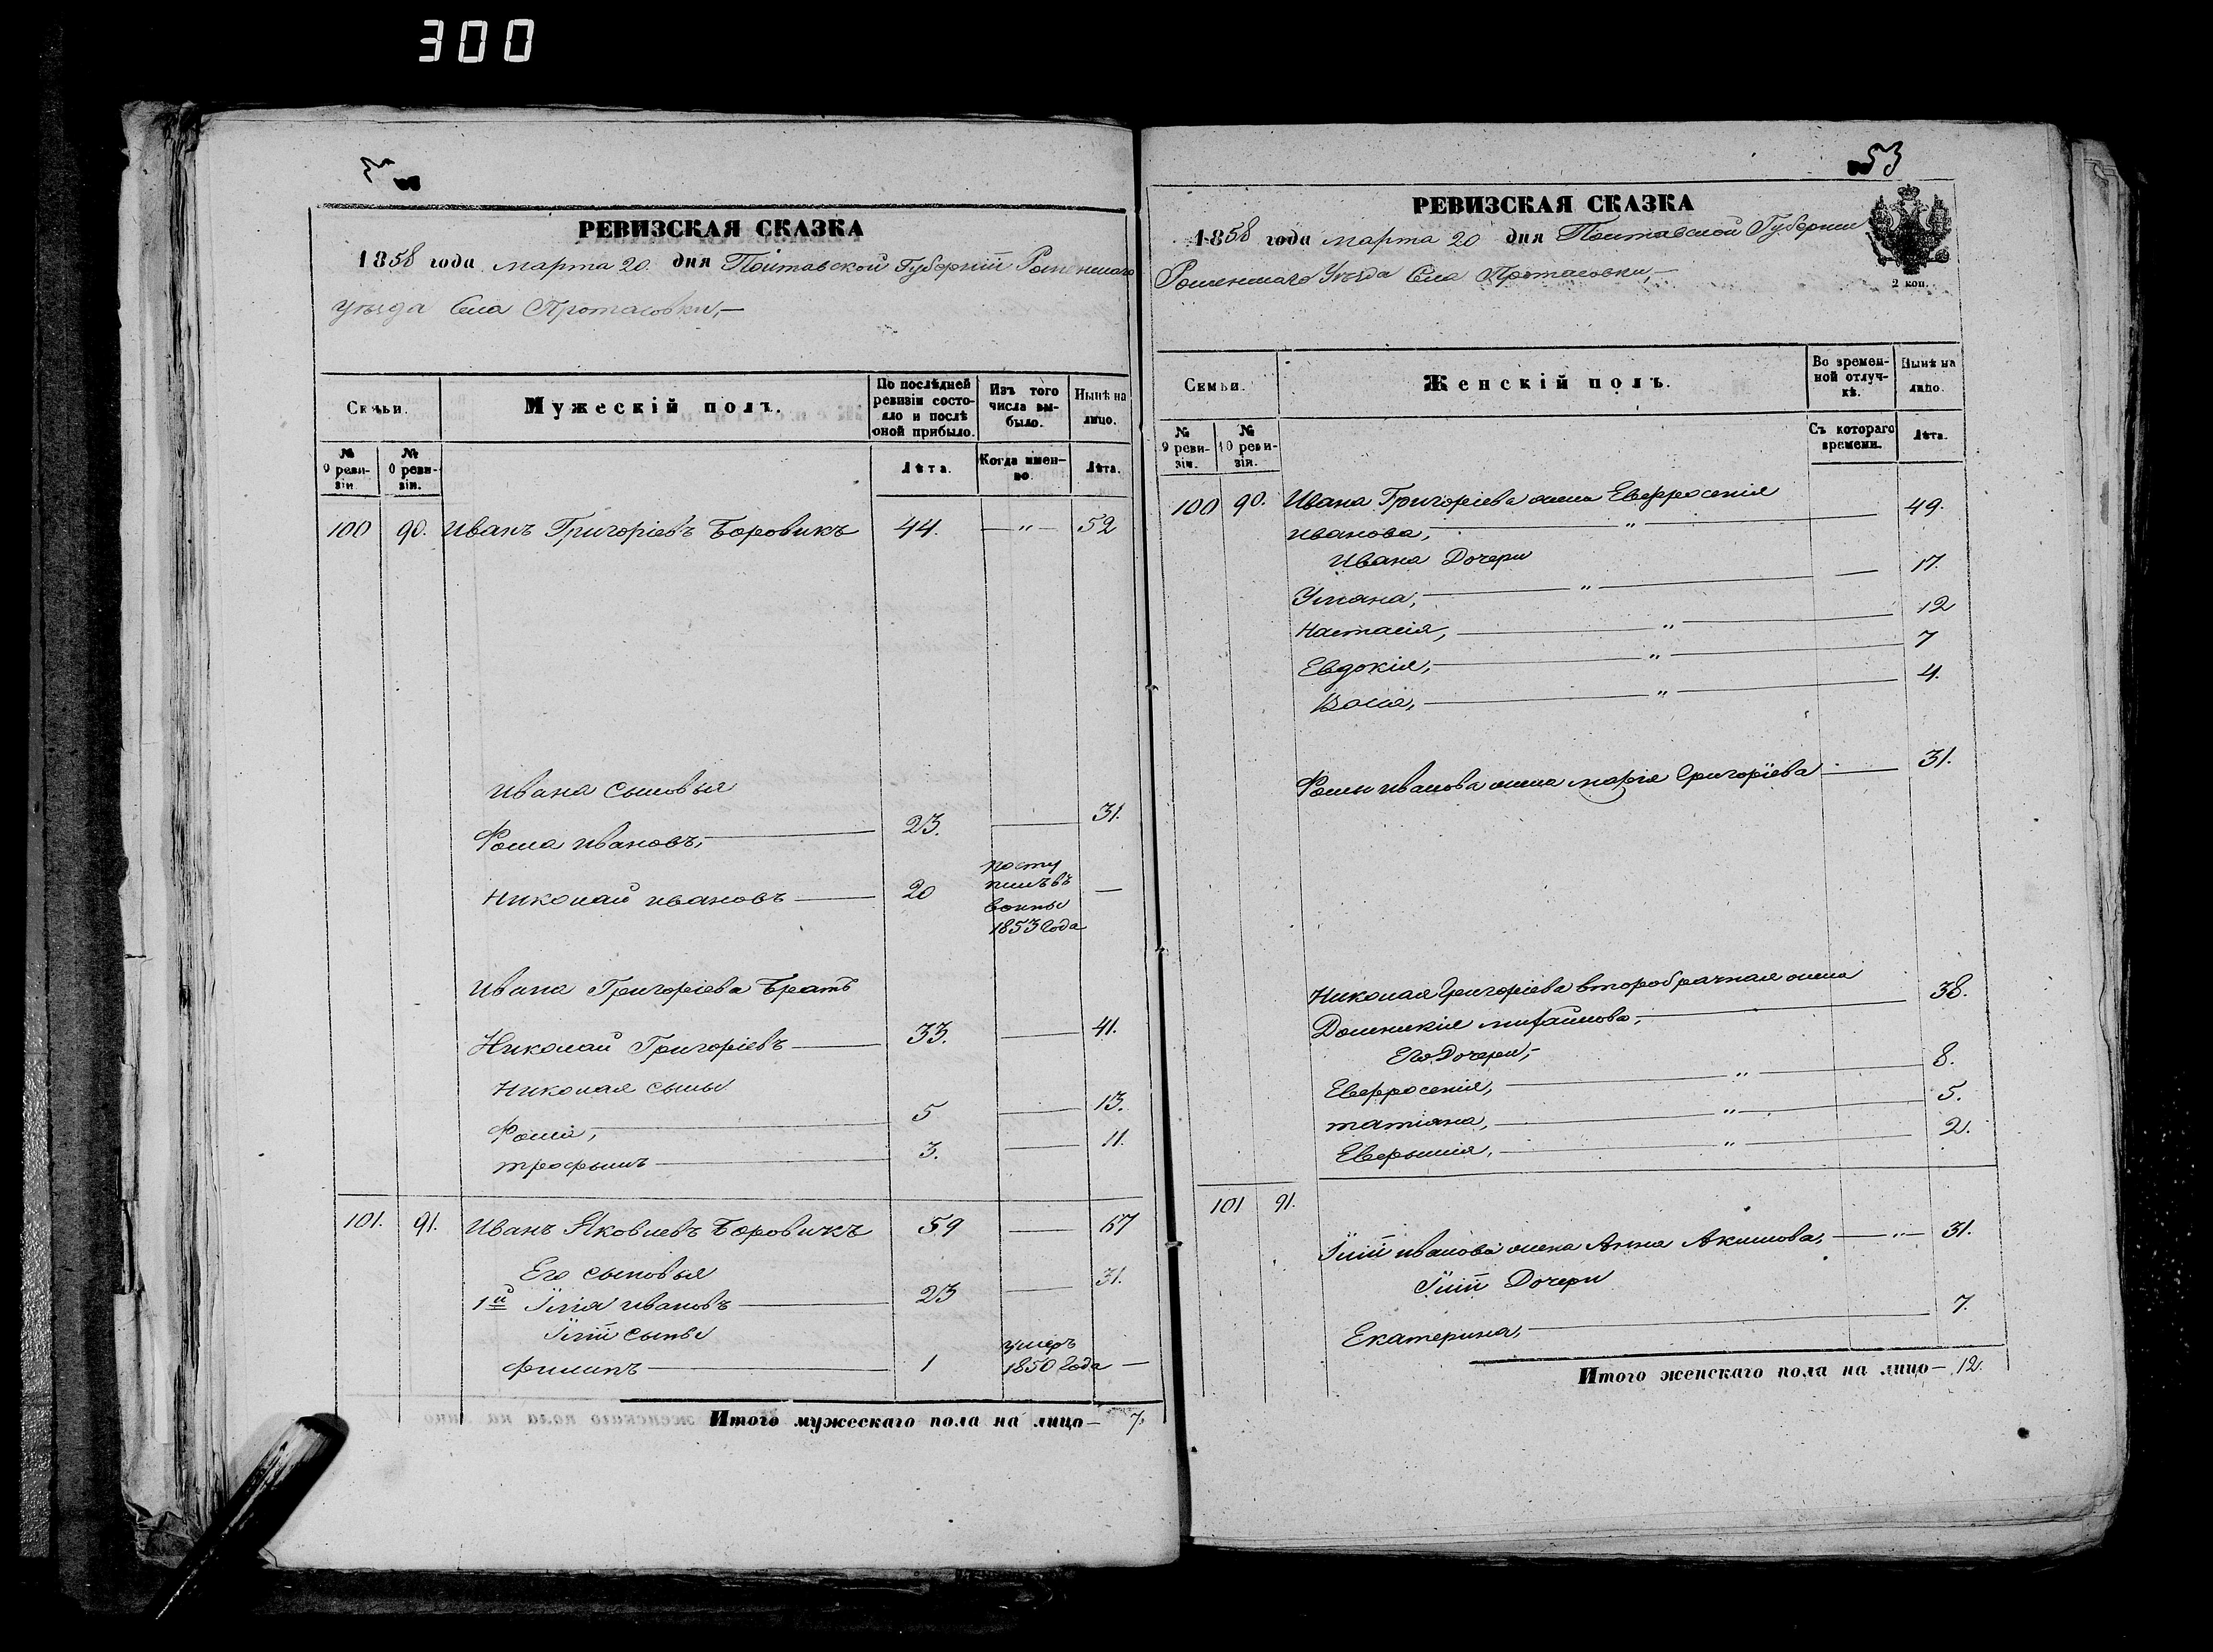 300
РЕВИЗСКАЯ СКАЗКА
1858 года марта 20 дня Полтавской Губерніи Роменскаго
уѣзда Села Протасовки,—
Семьи.
Мужескій полъ.
По послѣдней ревизіи состо-
яло и послѣ
оной прибыло.
Изъ того
числа вы-
было.
Нынѣ на
лицо.
№
9 реви-
зіи
№
0 реви-
зіи.
Лѣта.
Когда имен-
но.
Лѣта.
100 90. Иванъ Григоріевъ Боровикъ 44. — " — 52
Ивана сыновья
Фома Ивановъ, — 23. — 31.
Николай Ивановъ — 20 посту
пилъ въ —
воины
1853 года
Ивана Григоріева Братъ
Николай Григоріевъ — 33. — 41.
Николая сыны
Фома, — 5 — 13.
Трофымъ — 3. — 11.
101. 91. Иванъ Яковлевъ Боровикъ 59 — 67
Его сыновья
1й Илія Ивановъ — 23 — 31.
Иліи сынъ
Филипъ — 1 умеръ
1850 года —
Итого мужескаго пола на лицо — 7.
53
РЕВИЗСКАЯ СКАЗКА
1858 года марта 20 дня Полтавской Губерніи
Роменскаго Уѣзда Села Протасовки,—
2 коп.
Семьи.
Женскій полъ.
Во времен-
ной отлуч-
кѣ.
Нынѣ на
лицо.
№
9 реви-
зіи.
№
10 реви-
зія.
Съ котораго
времени.
Лѣта.
100 90. Ивана Григоріева жена Евфросенія
Иванова, — " — 49.
Ивана Дочери
Уліяна, — " — 17.
Настасія, — " — 12
Евдокія, — " — 7
— " — 4.
Фомы Иванова жена Марія Григоріева — 31.
Николая Григоріева второбрачная жена
Домникія Михайлова, — 38.
Его Дочери,—
Евфросенія, — " — 8.
Татіяна, — " — 5.
— " — 2.
101 91.
Иліи Иванова жена Анна Акимова, — " — 31.
Иліи Дочери
Екатерина, — 7.
Итого женскаго пола на лицо — 12.